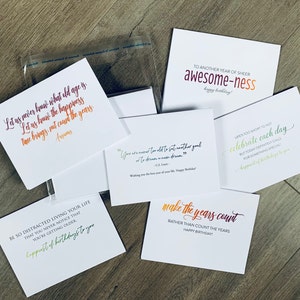 Let us never know what old age is.
Let us know the happiness
time brings, not count the years.
Ausonius
TO ANOTHER YEAR OF SHEER
awesome-ness
happy birthday!
"You are never too old to set another goal
or to dream a new dream."
C.S. Lewis
Wishing you the best year of your life. Happy Birthday!
celebrate each day
BE SO DISTRACTED LIVING YOUR LIFE
THAT YOU NEVER NOTICE THAT
YOU'RE GETTING OLDER.
happiest of birthdays to you
make the years count
RATHER THAN COUNT THE YEARS.
HAPPY BIRTHDAY!